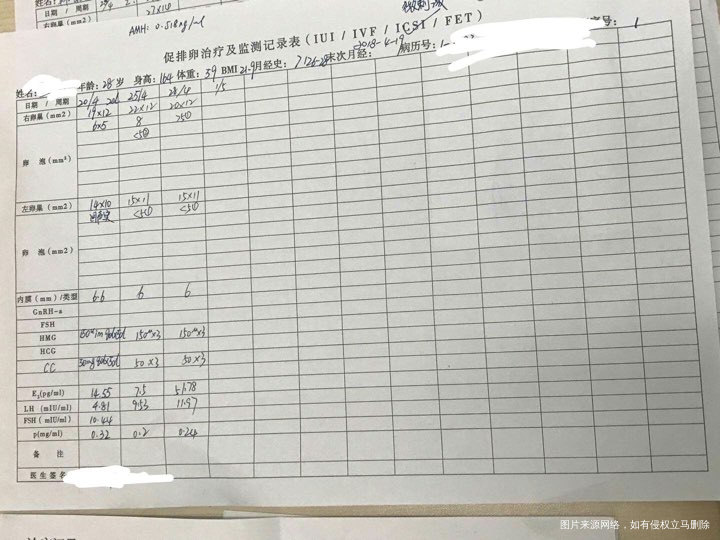 AMH: 0.518ng/ml 微刺激
促排卵治疗及监测记录表（IUI / IVF / ICSI / FET）
姓名: 年龄: 28 岁 身高: 164 体重: 59 BMI 21.9 月经史: 7/26-28 末次月经: 2018-4-19 病历号: 序号: 1
日期 / 周期 20/4 25/4 28/4 1/5
右卵巢（mm2） 19×12 22×12 20×12
6×5 8 >5①
<5②
卵 泡（mm²）
左卵巢（mm2） 14×10 15×11 15×11
<5① <5①
卵 泡（mm2）
内膜（mm）/类型 6.6 6 6
GnRH-a
FSH
HMG 150iu×3 150iu×3
HCG
CC 50×3 50×3
E₂(pg/ml) 14.55 7.5 51.78
LH (mIU/ml) 4.81 9.53 11.97
FSH (mIU/ml) 10.44
p(mg/ml) 0.32 0.2 0.24
备 注
医生签名
图片来源网络，如有侵权立马删除